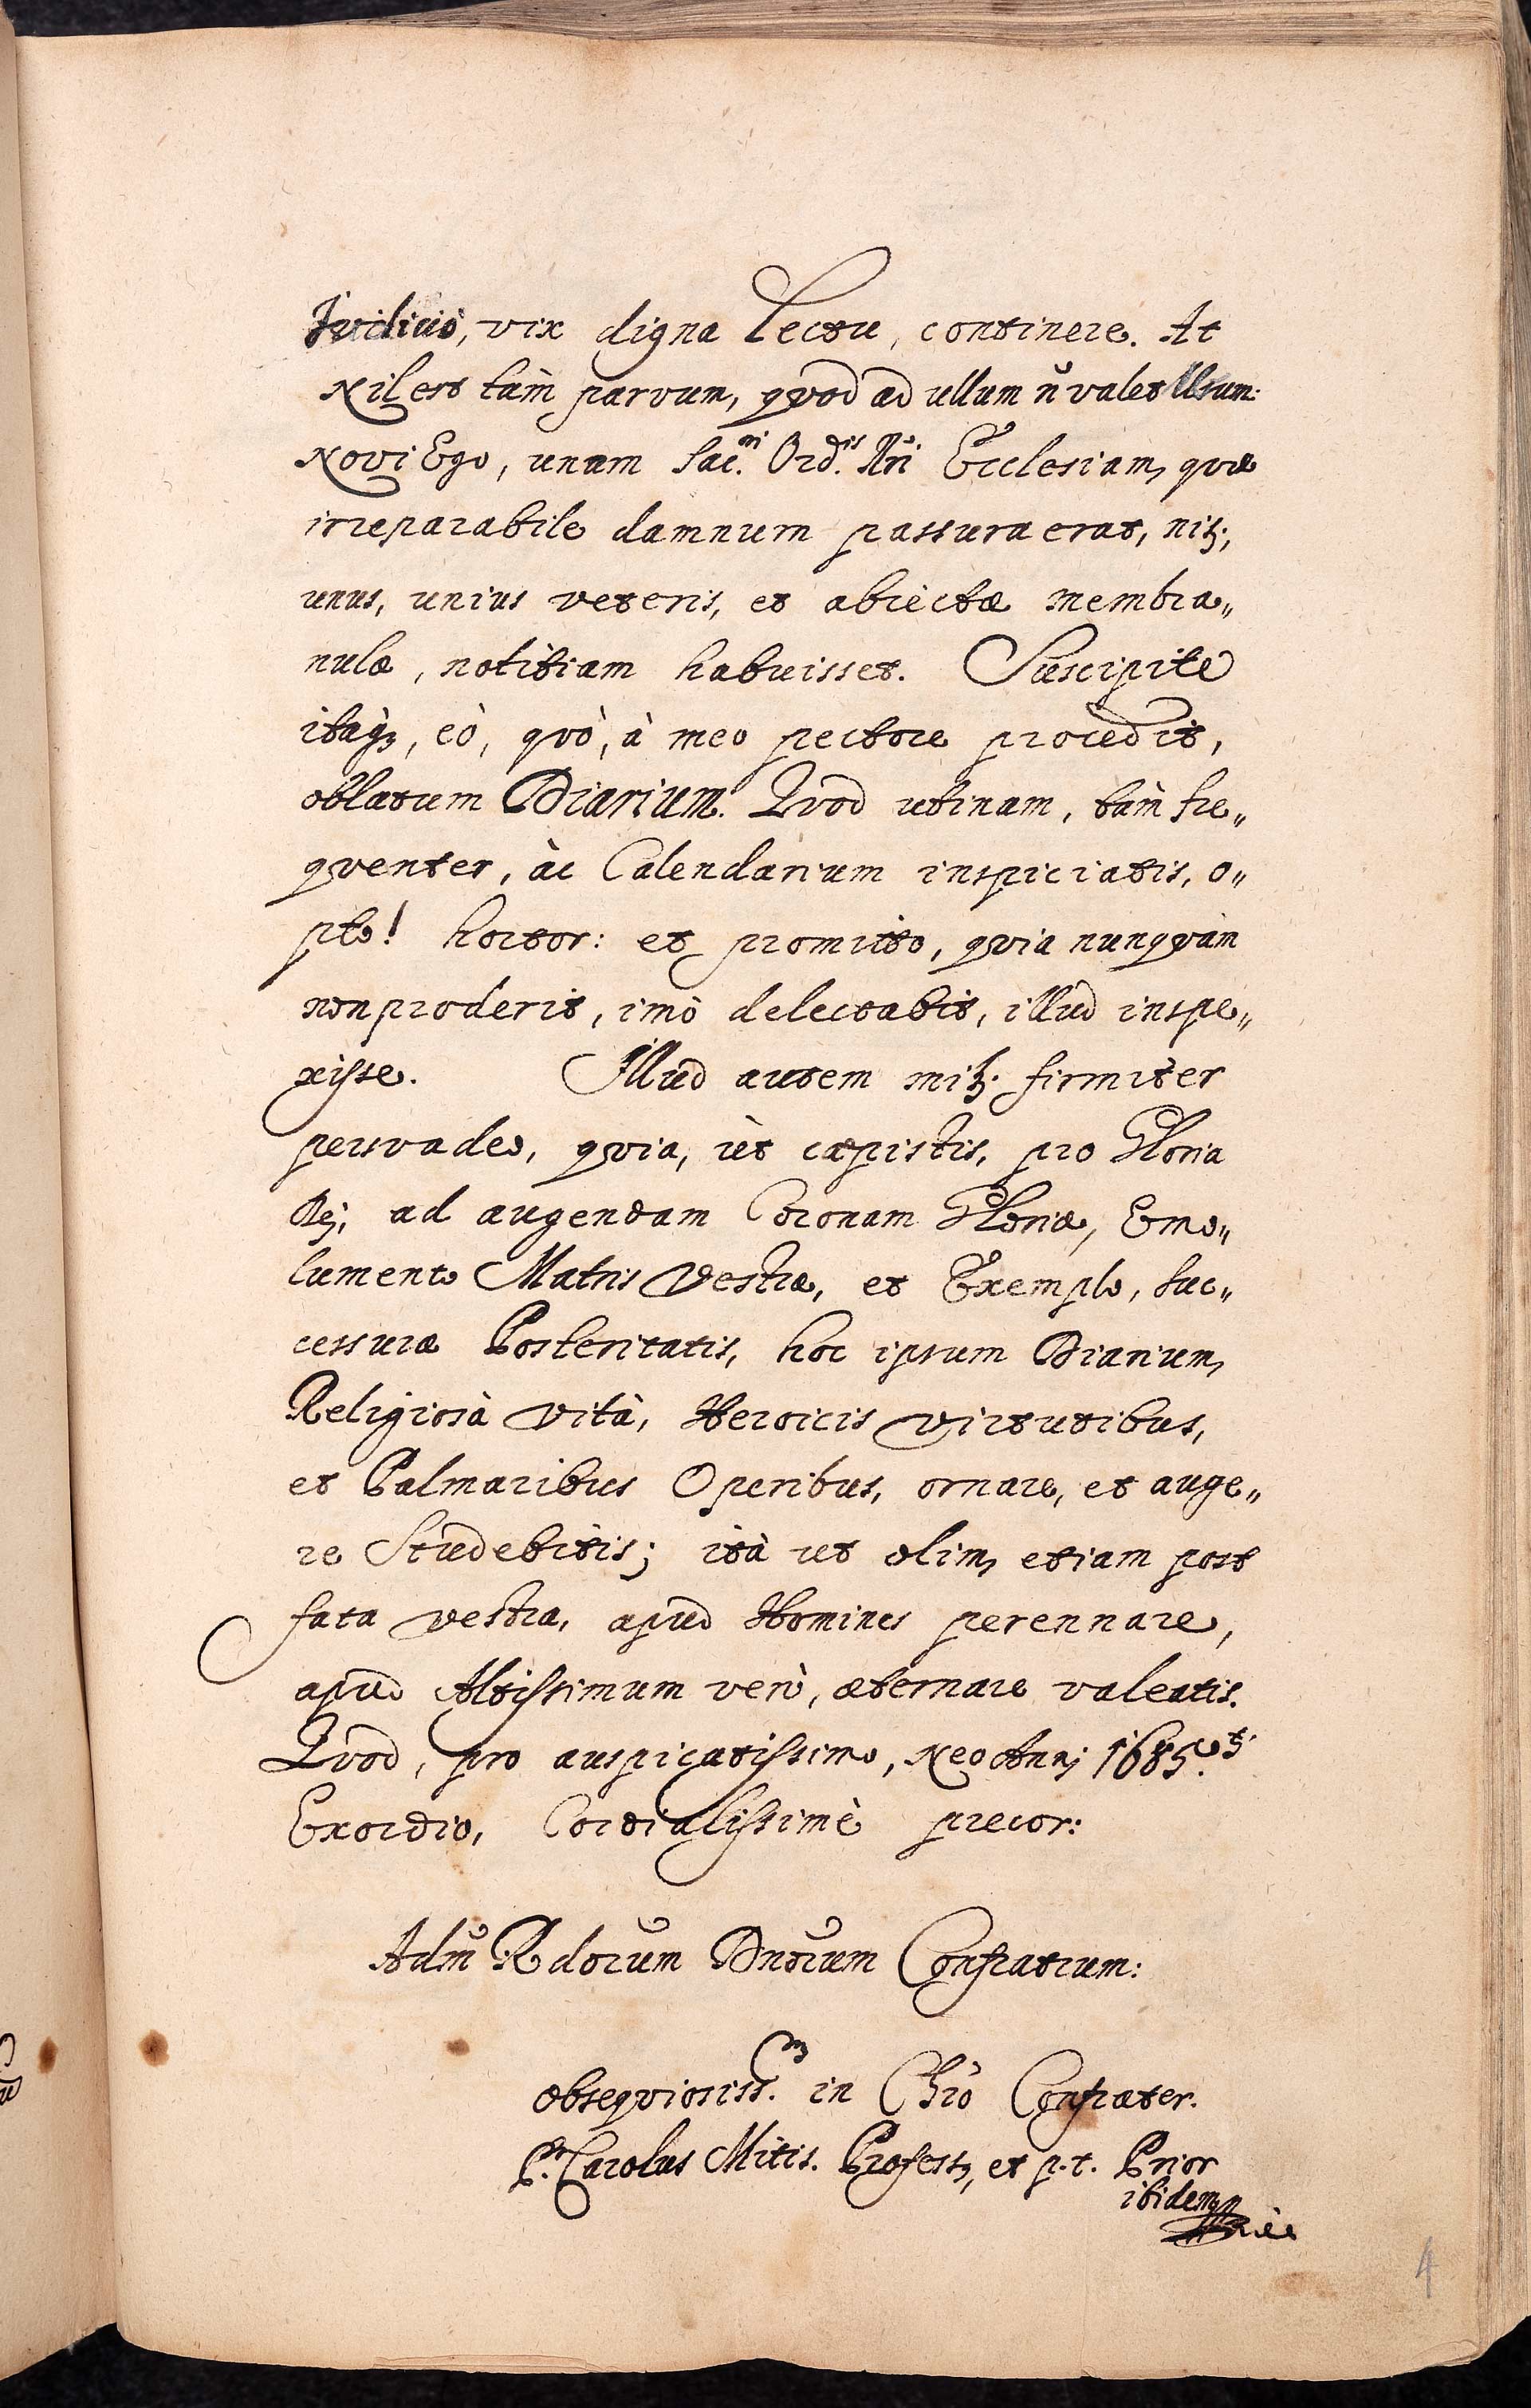 Judicio, vix digna Lectu, continere. At
Nil est tàm parvum, qvod ad ullum n̄ valet Usum:
Novi Ego, unam Sac.ri Ord.is Nri Ecclesiam, qvæ
irreparabile damnum passura erat, nisi,
unus, unius veteris, et abiectæ membra„
nulæ, notitiam habuisset. Suscipite
itaqꝫ, eò, qvò, à meo pectore procedit,
oblatum Diarium. Qvod utinam, tàm fre„
qventer, àc Calendarium inspiciatis, o„
pto! hortor: et promitto, qvia nunqvàm
non proderit, imò delectabit, illud inspe„
xisse. Illud autem mihi firmiter
persvadeo, qvia, ùt cæpistis, pro Gloria
Dei, ad augendam Coronam Gloriæ, Emo„
lumento Matris Vestræ, et Exemplo, suc„
cessuræ Posteritatis, hoc ipsum Diarium,
Religiosà Vità, Heroicis Virtutibus,
et Palmaribus Operibus, ornare, et auge„
re Studebitis; ità ut olim, etiam post
fata vestra, apud Homines perennare,
apud Altissimum verò, æternare valeatis.
Qvod, pro auspicatissimo, Neo Anni 1685.ti
Exordio, Cordialissimè precor:
Adm̄ Rdorum Dnorum Confratrum:
obseqviosiss. in Chro Confrater.
P. Carolus Mitis. Professꝫ, et p.t. Prior
ibidem
4